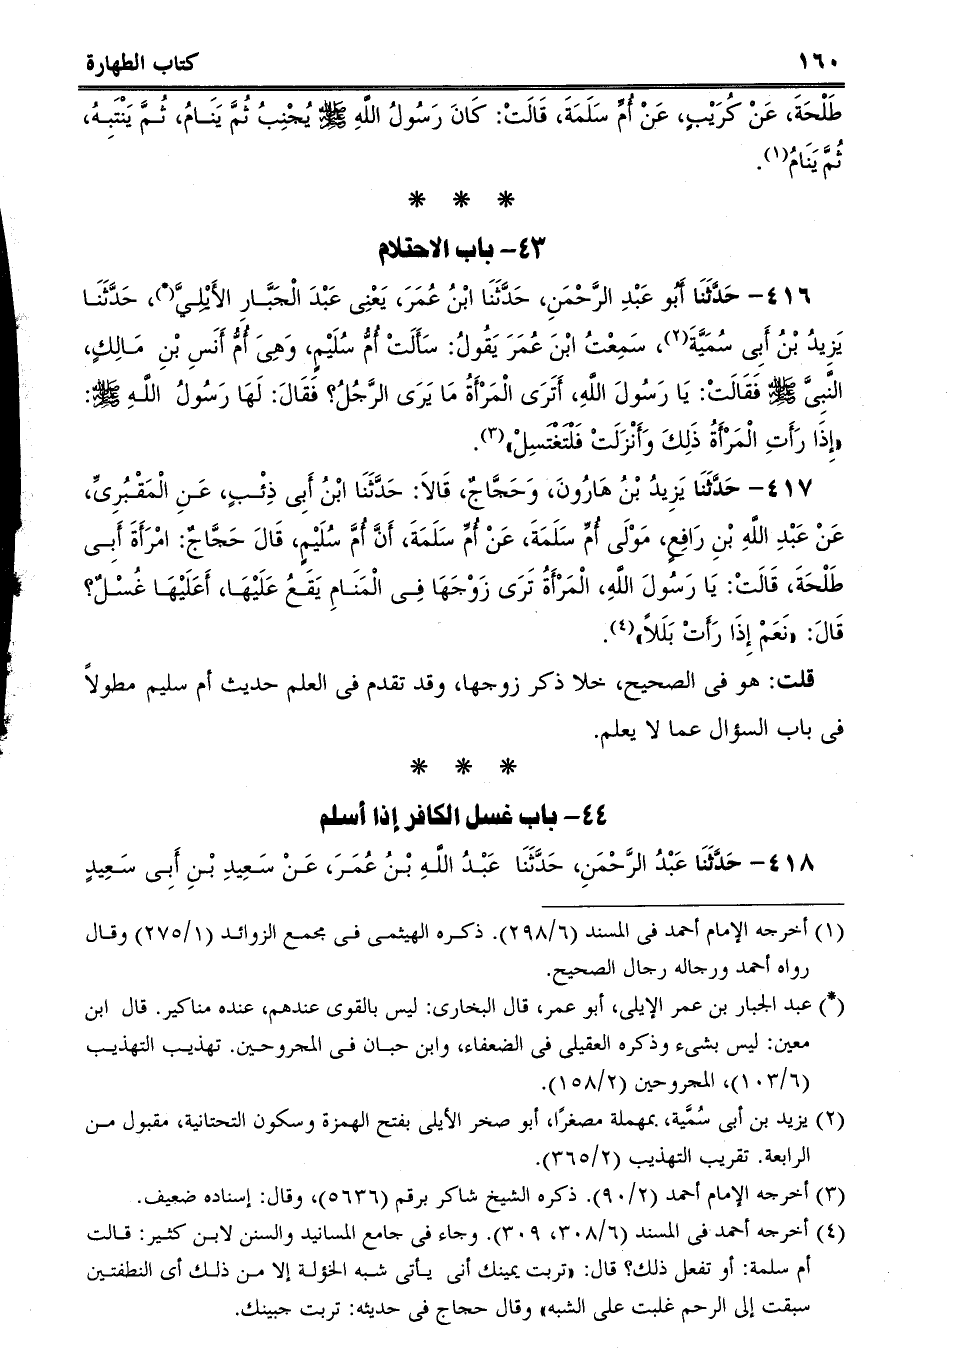 ١٦٠ كتاب الطهارة
طَلْحَةَ، عَنْ كُرَيْبٍ، عَنْ أُمِّ سَلَمَةَ، قَالَتْ: كَانَ رَسُولُ اللَّهِ ﷺ يُجْنِبُ ثُمَّ يَنَامُ، ثُمَّ يَنْتَبِهُ،
ثُمَّ يَنَامُ(١).
* * *
٤٣- باب الاحتلام
٤١٦- حَدَّثَنَا أَبُو عَبْدِ الرَّحْمَنِ، حَدَّثَنَا ابْنُ عُمَرَ، يَعْنِى عَبْدَ الْجَبَّارِ الأَيْلِىَّ(*)، حَدَّثَنَا
يَزِيدُ بْنُ أَبِى سُمَيَّةَ(٢)، سَمِعْتُ ابْنَ عُمَرَ يَقُولُ: سَأَلَتْ أُمُّ سُلَيْمٍ، وَهِىَ أُمُّ أَنَسِ بْنِ مَالِكٍ،
النَّبِىَّ ﷺ فَقَالَتْ: يَا رَسُولَ اللَّهِ، أَتَرَى الْمَرْأَةُ مَا يَرَى الرَّجُلُ؟ فَقَالَ: لَهَا رَسُولُ اللَّهِ ﷺ:
«إِذَا رَأَتِ الْمَرْأَةُ ذَلِكَ وَأَنْزَلَتْ فَلْتَغْتَسِلْ»(٣).
٤١٧- حَدَّثَنَا يَزِيدُ بْنُ هَارُونَ، وَحَجَّاجٌ، قَالاَ: حَدَّثَنَا ابْنُ أَبِى ذِئْبٍ، عَنِ الْمَقْبُرِىِّ،
عَنْ عَبْدِ اللَّهِ بْنِ رَافِعٍ، مَوْلَى أُمِّ سَلَمَةَ، عَنْ أُمِّ سَلَمَةَ، أَنَّ أُمَّ سُلَيْمٍ، قَالَ حَجَّاجٌ: امْرَأَةَ أَبِى
طَلْحَةَ، قَالَتْ: يَا رَسُولَ اللَّهِ، الْمَرْأَةُ تَرَى زَوْجَهَا فِى الْمَنَامِ يَقَعُ عَلَيْهَا، أَعَلَيْهَا غُسْلٌ؟
قَالَ: «نَعَمْ إِذَا رَأَتْ بَلَلاً»(٤).
قلت: هو فى الصحيح، خلا ذكر زوجها، وقد تقدم فى العلم حديث أم سليم مطولاً
فى باب السؤال عما لا يعلم.
* * *
٤٤- باب غسل الكافر إذا أسلم
٤١٨- حَدَّثَنَا عَبْدُ الرَّحْمَنِ، حَدَّثَنَا عَبْدُ اللَّهِ بْنُ عُمَرَ، عَنْ سَعِيدِ بْنِ أَبِى سَعِيدٍ
(١) أخرجه الإمام أحمد فى المسند (٢٩٨/٦). ذكره الهيثمى فى مجمع الزوائد (٢٧٥/١) وقال
رواه أحمد ورجاله رجال الصحيح.
(*) عبد الجبار بن عمر الإيلى، أبو عمر، قال البخارى: ليس بالقوى عندهم، عنده مناكير. قال ابن
معين: ليس بشىء وذكره العقيلى فى الضعفاء، وابن حبان فى المجروحين. تهذيب التهذيب
(١٠٣/٦)، المجروحين (١٥٨/٢).
(٢) يزيد بن أبى سُمَّية، بمهملة مصغرًا، أبو صخر الأيلى بفتح الهمزة وسكون التحتانية، مقبول من
الرابعة. تقريب التهذيب (٣٦٥/٢).
(٣) أخرجه الإمام أحمد (٩٠/٢). ذكره الشيخ شاكر برقم (٥٦٣٦)، وقال: إسناده ضعيف.
(٤) أخرجه أحمد فى المسند (٣٠٨/٦، ٣٠٩). وجاء فى جامع المسانيد والسنن لابن كثير: قالت
أم سلمة: أو تفعل ذلك؟ قال: «تربت يمينك أنى يأتى شبه الخؤلة إلا من ذلك أى النطفتين
سبقت إلى الرحم غلبت على الشبه» وقال حجاج فى حديثه: تربت جبينك.